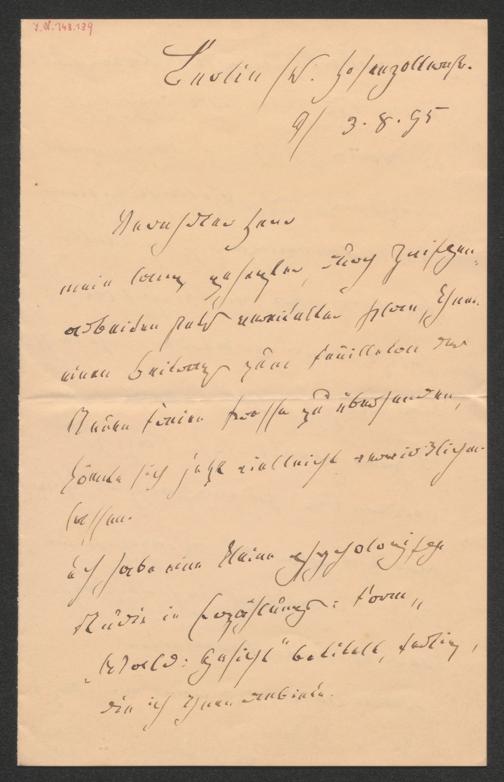 I.N. 148.139
Berlin W. Hohenzollernstr.
9/ 3.8.95
Verehrter Herr
mein lang gehegter, durch Zwischen-
arbeiten stets vereitelter Plan, Ihnen
einen Beitrag zum Feuilleton der
Neuen Freien Presse zu übersenden,
könnte sich jetzt vielleicht verwirklichen
lassen.
Ich habe eine kleine psychologische
Studie in Erzählungs: Form,
betitelt, fertig,
die ich Ihnen anbiete.